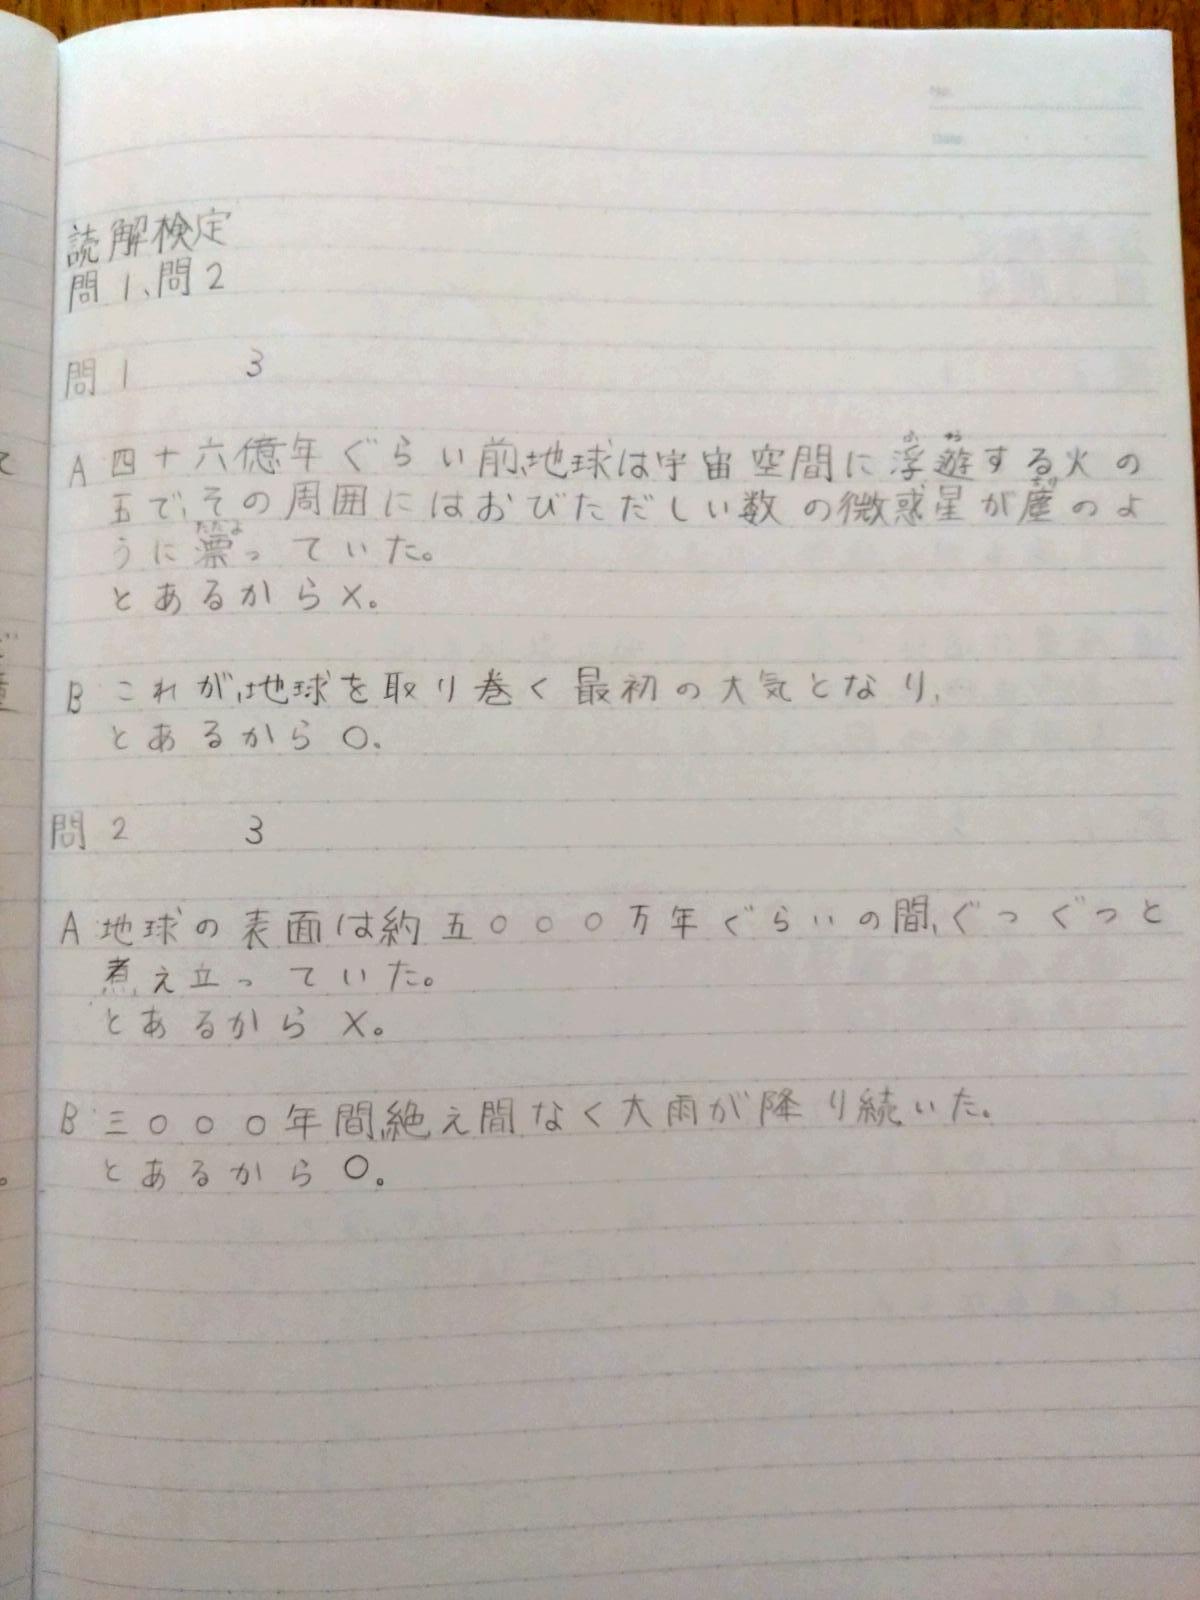 読解検定
問1、問2
問1 3
A 四十六億年ぐらい前、地球は宇宙空間に浮遊する火の
五で、その周囲にはおびただしい数の微惑星が塵のよ
うに漂っていた。
とあるから×。
B これが、地球を取り巻く最初の大気となり、
とあるから〇。
問2 3
A 地球の表面は約五〇〇〇万年ぐらいの間、ぐっぐっと
煮え立っていた。
とあるから×。
B 三〇〇〇年間、絶え間なく大雨が降り続いた。
とあるから〇。